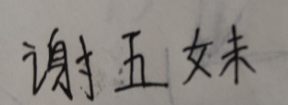 谢五妹